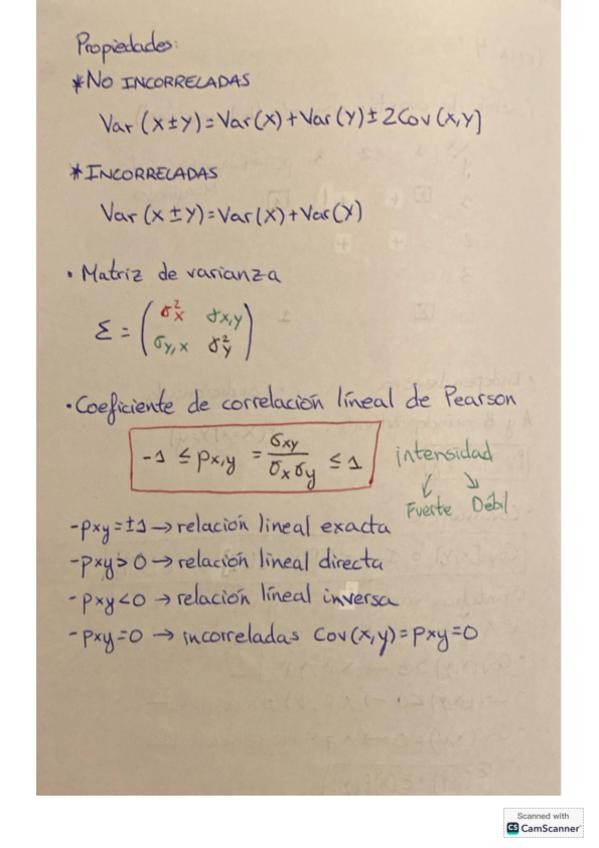 Propiedades:
*NO INCORRELADAS
Var (X±Y)=Var(X)+Var(Y)±2Cov(X,Y)
*INCORRELADAS
Var (X±Y)=Var(X)+Var(Y)
• Matriz de varianza
Σ = ( σ²x σx,y
σy,x σ²y )
• Coeficiente de correlación líneal de Pearson
-1 ≤ ρx,y = σxy / σx σy ≤ 1 intensidad
↓ ↘
Fuerte Débil
-ρxy=±1→relación lineal exacta
-ρxy>0→relación lineal directa
-ρxy<0→relación líneal inversa
-ρxy=0→incorreladas Cov(x,y)=ρxy=0
Scanned with
CS CamScanner